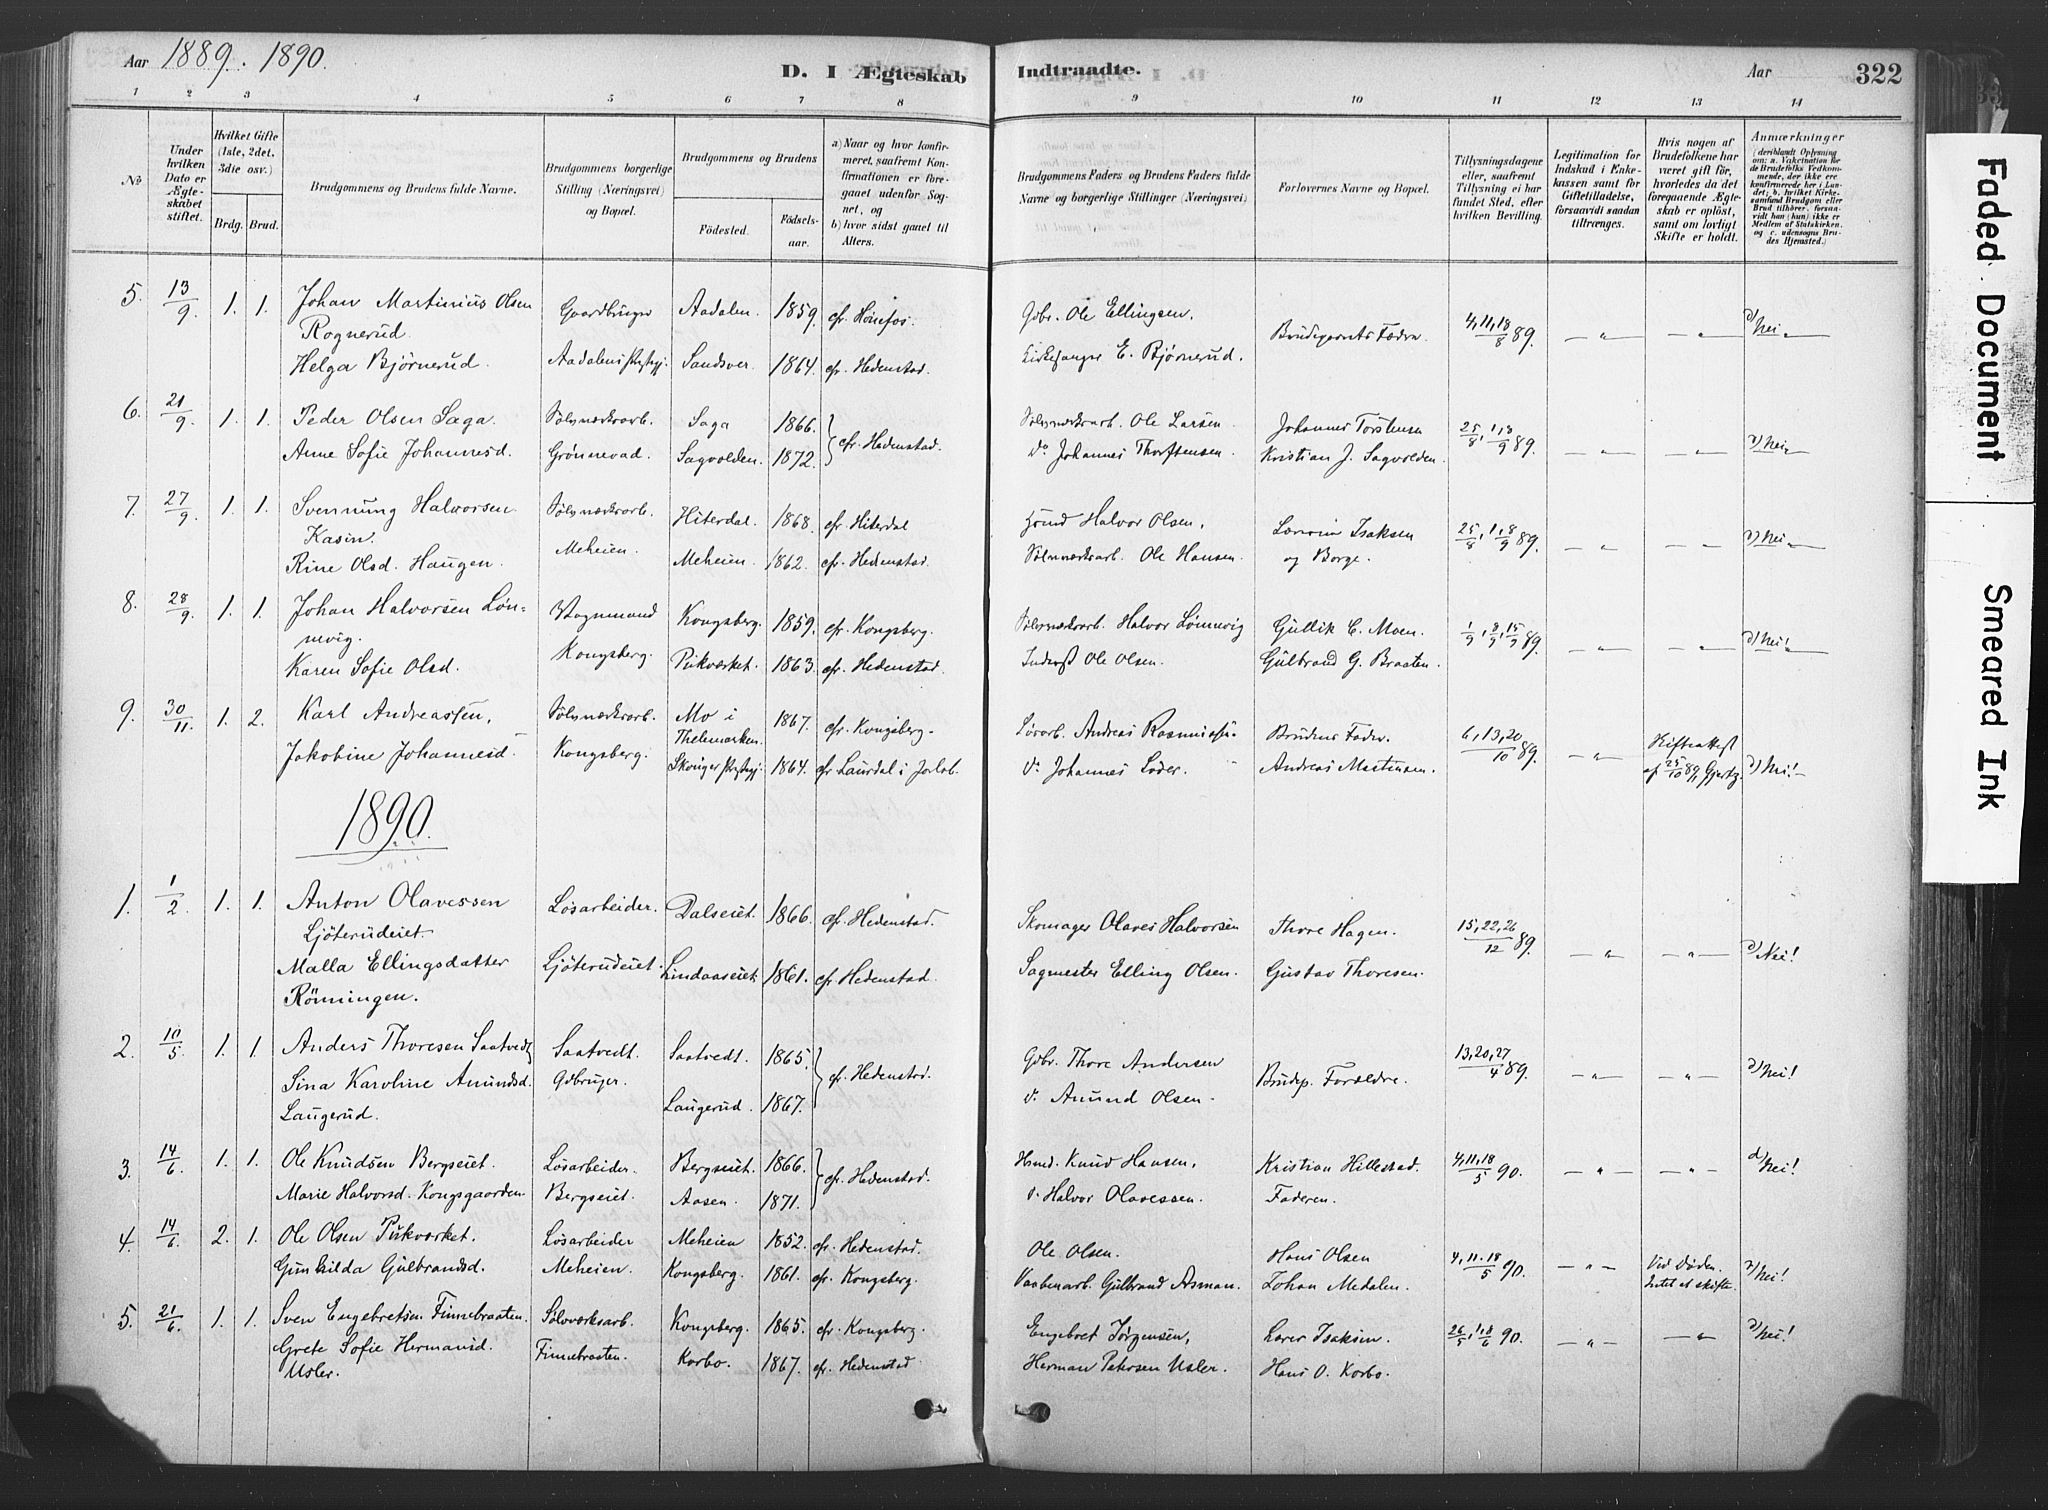 Aar 1889. 1890.
D. I Ægteskab Indtraadte.
Aar
322
1 2 3 4 5 6 7 8 9 10 11 12 13 14
No
Under hvilken Dato er Ægteskabet stiftet.
Hvilket Gifte (1ste, 2det, 3die osv.)
Brdg. Brud.
Brudgommens og Brudens fulde Navne.
Brudgommens borgerlige Stilling (Næringsvei) og Bopæl.
Brudgommens og Brudens
Fødested. Fødselsaar.
a) Naar og hvor konfirmeret, saafremt Konfirmationen er foregaaet udenfor Sognet, og
b) hvor sidst gaaet til Alters.
Brudgommens Faders og Brudens Faders fulde Navne og borgerlige Stillinger (Næringsvei)
Forlovernes Navne og Bopæl.
Tillysningsdagene eller, saafremt Tillysning ei har fundet Sted, efter hvilken Bevilling.
Legitimation for Indskud i Enkekassen samt for Giftetilladelse, forsaavidt saadan tiltrænges.
Hvis nogen af Brudefolkene har været gift før, hvorledes da det foregaaende Ægteskab er opløst, samt om lovligt Skifte er holdt.
Anmærkninger
(deriblandt Oplysning om: a. Vakcination for de Brudefolks Vedkommende, der ikke ere konfirmerede her i Landet; b. hvilket Kirkesamfund Brudgom eller Brud tilhører, forsaavidt han (hun) ikke er Medlem af Statskirken, og c. udensogns Brudes Hjemsted.)
5. 13/9 1. 1. Johan Martinius Olsen Gaardbruger Aadalen. 1859. cfr. Hönefos. Gbr. Ole Ellingsen, Brudeparrets Fædre. 4,11,18/8 89. — " — — " — a) Nei "
Rognerud.
Helga Bjørnerud. Aadalens Prstgj. Sandsver. 1864. cfr. Hedenstad. Kirkesanger E. Bjørnerud.
6. 21/9 1. 1. Peder Olsen Saga. Sølvværksarb. Saga 1866. cfr. Hedenstad. Sølvværksarb. Ole Larsen Johannes Torstensen 25/8, 1,8/9 89. — " — — " — a) Nei
Anne Sofie Johannesd. Grønnevad. Sagvolden. 1872. Do. Johannes Thorstensen. Kristian J. Sagvolden.
7. 27/9 1. 1. Svennung Halvorsen Sølvværksarb. Hiterdal. 1868. cfr. Hiterdal Hmd Halvor Olsen, Isaksen 25/8, 1,8/9 89. — " — — " — a) Nei "
Kasin.
Rine Olsd. Haugen. Meheien. Meheien. 1862. cfr. Hedenstad. Sølvværksarb. Ole Hansen. og Borge.
8. 28/9 1. 1. Johan Halvorsen Løn- Vognmand Kongsberg. 1859. cfr. Kongsberg. Sølvværksarb. Halvor Lønnevig Gullik C. Moen. 1/9, 8/9, 15/9 89. — " — — " — a) Nei!
nevig.
Karen Sofie Olsd. Kongsberg. Pukværket. 1863. cfr. Hedenstad. Inderst Ole Olsen. Gulbrand G. Braaten.
9. 30/11 1. 2. Karl Andreassen, Sølvværksarb. Mo i Thelemarken. 1867. cfr. Kongsberg. Løsarb. Andreas Rasmussen Brudens Fader. 6,13,20/10 89. — " — Skifteattest af 25/10 89, Gjertz. a) Nei!
Jakobine Johannesd. Kongsberg. Skouger Prstgj. 1864. cfr. Laurdal i Jarlsb. Do. Johannes Loder. Andreas Martinsen.
1890.
1. 1/2 1. 1. Anton Olavessen Løsarbeider. Dalseiet. 1866. cfr. Hedenstad. Skomager Olaves Halvorsen Thore Hagen. 15,22,26/12 89. — " — — " — a) Nei!
Ljöterudeiet.
Malla Ellingsdatter Ljöterudeiet. Lindaaseiet. 1861. cfr. Hedenstad. Sagmester Elling Olsen. Gustav Thoresen.
Rönningen.
2. 10/5 1. 1. Anders Thoresen Saatvedt Saatvedt. Saatvedt. 1865. cfr. Hedenstad. Gdbr. Thore Andersen Brudep. Forældre. 13,20,27/4 89. — " — — " — a) Nei!
Sina Karoline Amundsd. Gdbruger. Laugerud. 1867. Do. Amund Olsen.
Laugerud.
3. 14/6 1. 1. Ole Knudsen Bergseiet. Løsarbeider. Bergseiet. 1866. cfr. Hedenstad. Hsmd. Knud Hansen, Kristian Hillestad. 4,11,18/5 90. — " — — " — a) Nei!
Marie Halvorsd. Kongsgaarden. Bergseiet. Aasen. 1871. Do Halvor Olavessen. Faderen.
4. 14/6 2. 1. Ole Olsen Pukværket. Løsarbeider Meheien 1852. cfr. Hedenstad. Ole Olsen. Hans Olsen 4,11,18/5 90. — " — Ved Døden. Intet at skifte. a) Nei!
Gunhilda Gulbrandsd. Meheien. Kongsberg. 1861. cfr. Kongsberg. Vaabenarb. Gulbrand Asman. Johan Medalen.
5. 21/6 1. 1. Sven Engebretsen Finnebraaten. Sølvværksarb. Kongsberg. 1865. cfr. Kongsberg. Engebret Jørgensen, Lærer Isaksen. 26/5, 1,8/6 90. — " — — " — a) Nei!
Grete Sofie Hermansd. Finnebraaten. Korbo. 1867. cfr. Hedenstad. Herman Petersen Usler. Hans O. Korbo.
Usler.
Faded Document
Smeared Ink